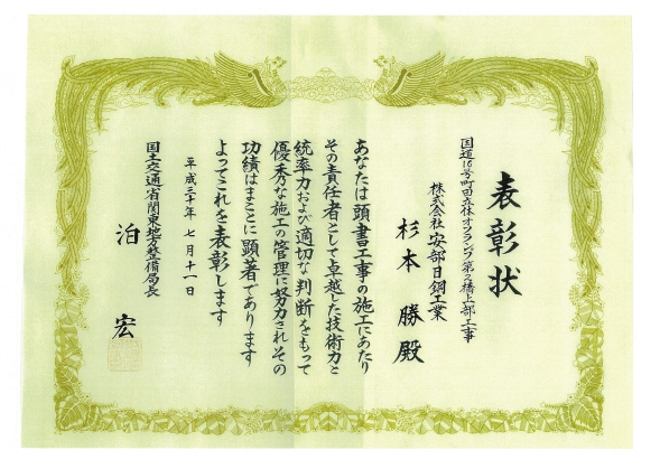 表彰状
国道16号町田立体オフランプ第2橋上部工事
株式会社安部日鋼工業
杉本 勝 殿
あなたは頭書工事の施工にあたり
その責任者として卓越した技術力と
統率力および適切な判断をもって
優秀な施工の管理に努力されその
功績はまことに顕著であります
よってこれを表彰します
平成三十年 七月十一日
国土交通省関東地方整備局長
泊 宏